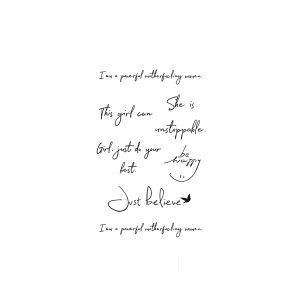 I am a powerful motherfucking woman
This girl can
She is
unstoppable.
Girl, just do your
best.
be
happy
Just believe
I am a powerful motherfucking woman